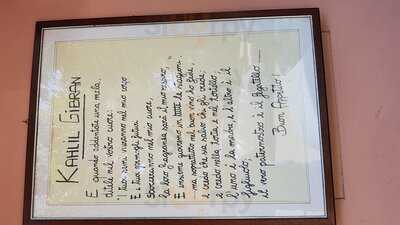 KAHLIL GIBRAN
E quando addentate una mela,
ditele nel vostro cuore:
"I tuoi semi vivranno nel mio corpo
E i tuoi germogli futuri
Sbocceranno nel mio cuore,
la loro fragranza sarà il mio respiro,
E insieme gioiremo in tutte le stagioni.
ma soprattutto nel buon vino ho fede,
e credo che sia salvo chi gli crede;
e credo nella torta e nel tortello:
l'uno è la madre e l'altro è il
figliuolo;
il vero paternostro è il fegatello
Buon Appetito!